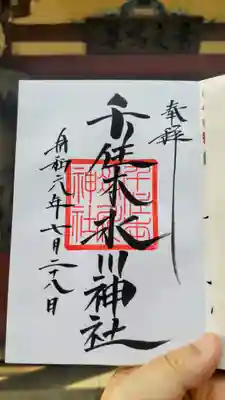 奉拝
千住本氷川神社
令和六年七月二十八日